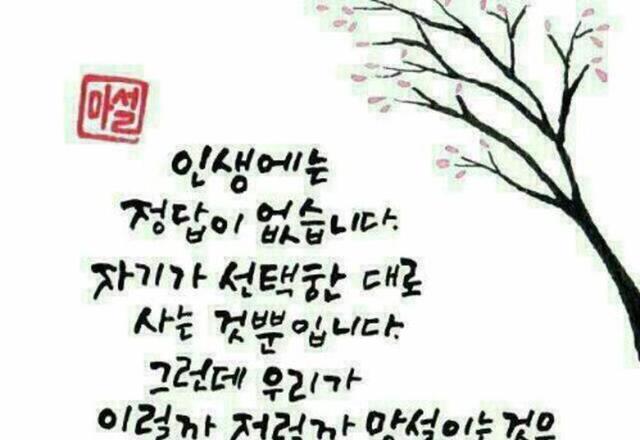 마설
인생에는
정답이 없습니다.
자기가 선택한 대로
사는 것뿐입니다.
그런데 우리가
이럴까 저럴까 망설이는 것은